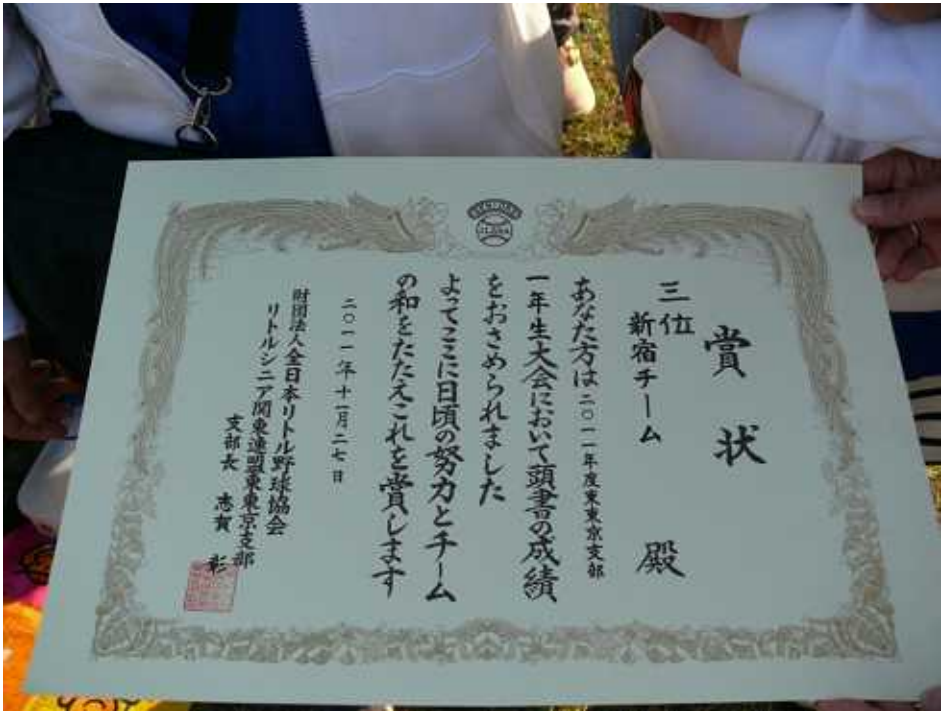 賞状
三位
新宿チーム 殿
あなた方は二〇一一年度東東京支部
一年生大会において頭書の成績
をおさめられました
よってここに日頃の努力とチーム
の和をたたえこれを賞します
二〇一一年十一月二七日
財団法人全日本リトル野球協会
リトルシニア関東連盟東東京支部
支部長 志賀 彰